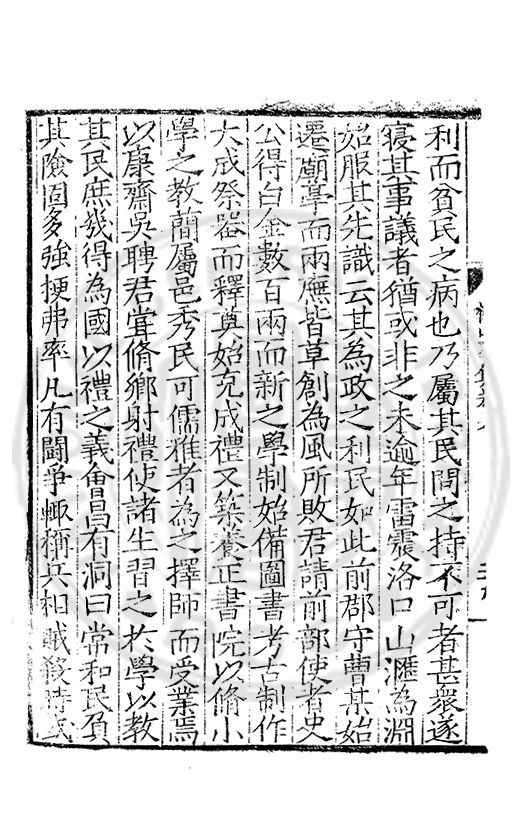 利而貧民之病也乃屬其民問之持不可者甚衆遂
寝其事議者猶或非之未逾年雷震洛口山滙為淵
始服其先識云其為政之利民如此前郡守曹某始
遷廟學而兩廡皆草創為風所敗君請前部使者史
公得白金數百兩而新之學制始備圖書考古制作
大成祭器而釋奠始克成禮又築養正書院以脩小
學之教蕳屬邑秀民可儒雅者為之擇師而受業焉
以康齋吳聘君嘗脩鄉射禮使諸生習之於學以教
其民庶幾得為國以禮之義會昌有洞曰常和民負
其險固多強梗弗率凡有鬬爭輙稱兵相賊殺時或